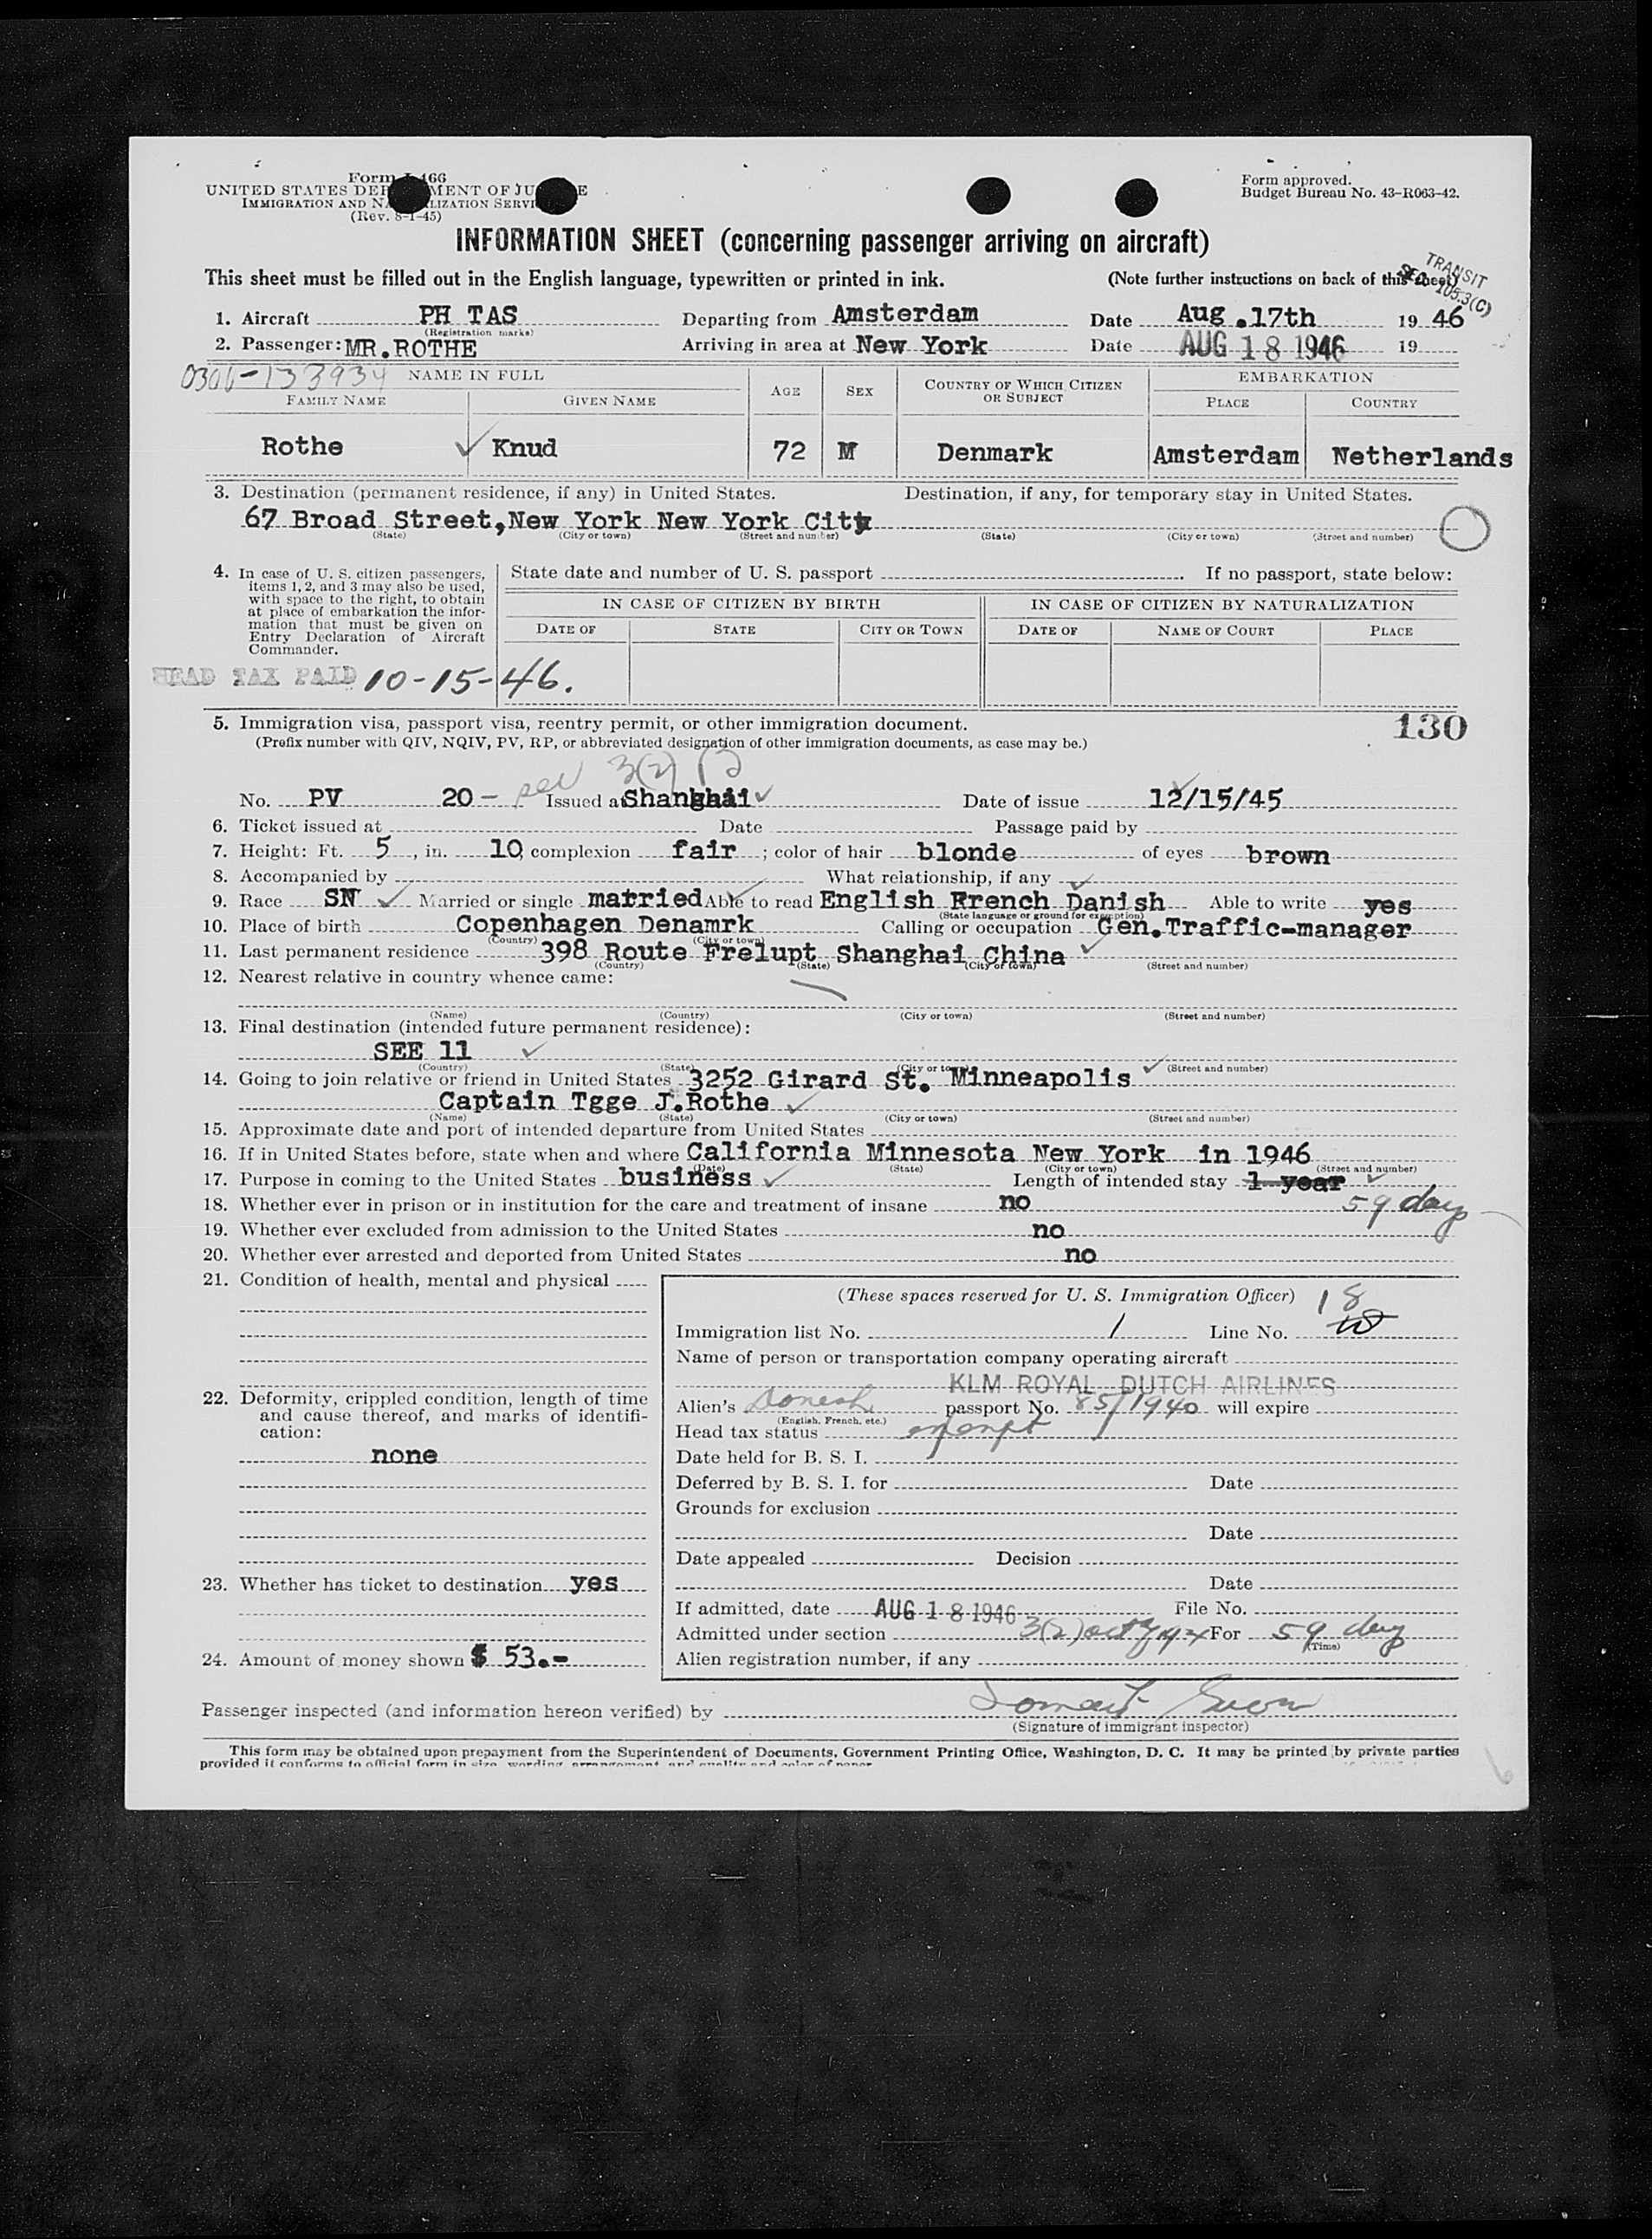 Form I-466
UNITED STATES DEPARTMENT OF JUSTICE
IMMIGRATION AND NATURALIZATION SERVICE
(Rev. 8-1-45)
Form approved.
Budget Bureau No. 43-R063-42.
INFORMATION SHEET (concerning passenger arriving on aircraft)
This sheet must be filled out in the English language, typewritten or printed in ink. (Note further instructions on back of this sheet)
TRANSIT
SEC. 105.3(C)
1. Aircraft PH TAS Departing from Amsterdam Date Aug.17th 19 46
(Registration marks)
2. Passenger: MR.ROTHE Arriving in area at New York Date AUG 18 1946 19
0306-133934 NAME IN FULL AGE SEX COUNTRY OF WHICH CITIZEN OR SUBJECT EMBARKATION
FAMILY NAME GIVEN NAME PLACE COUNTRY
Rothe Knud 72 M Denmark Amsterdam Netherlands
3. Destination (permanent residence, if any) in United States. Destination, if any, for temporary stay in United States.
67 Broad Street,New York New York City
(State) (City or town) (Street and number) (State) (City or town) (Street and number)
4. In case of U. S. citizen passengers,
items 1, 2, and 3 may also be used,
with space to the right, to obtain
at place of embarkation the infor-
mation that must be given on
Entry Declaration of Aircraft
Commander.
State date and number of U. S. passport . If no passport, state below:
IN CASE OF CITIZEN BY BIRTH IN CASE OF CITIZEN BY NATURALIZATION
DATE OF STATE CITY OR TOWN DATE OF NAME OF COURT PLACE
HEAD TAX PAID 10-15-46.
5. Immigration visa, passport visa, reentry permit, or other immigration document. 130
(Prefix number with QIV, NQIV, PV, RP, or abbreviated designation of other immigration documents, as case may be.)
3(2)
No. PV 20 - Issued at Shanghai Date of issue 12/15/45
6. Ticket issued at Date Passage paid by
7. Height: Ft. 5, in. 10, complexion fair; color of hair blonde of eyes brown
8. Accompanied by What relationship, if any
9. Race SN Married or single married Able to read English French Danish Able to write yes
(State language or ground for exemption)
10. Place of birth Copenhagen Denamrk Calling or occupation Gen.Traffic-manager
(Country) (City or town)
11. Last permanent residence 398 Route Frelupt Shanghai China
(Country) (State) (City or town) (Street and number)
12. Nearest relative in country whence came:
(Name) (Country) (City or town) (Street and number)
13. Final destination (intended future permanent residence):
SEE 11
(Country) (State) (City or town) (Street and number)
14. Going to join relative or friend in United States 3252 Girard St. Minneapolis
Captain Tgge J.Rothe
(Name) (State) (City or town) (Street and number)
15. Approximate date and port of intended departure from United States
16. If in United States before, state when and where California Minnesota New York in 1946
(Date) (State) (City or town) (Street and number)
17. Purpose in coming to the United States business Length of intended stay 1 year
59 days
18. Whether ever in prison or in institution for the care and treatment of insane no
19. Whether ever excluded from admission to the United States no
20. Whether ever arrested and deported from United States no
21. Condition of health, mental and physical
22. Deformity, crippled condition, length of time
and cause thereof, and marks of identifi-
cation:
none
23. Whether has ticket to destination yes
24. Amount of money shown $ 53.-
(These spaces reserved for U. S. Immigration Officer) 18
Immigration list No. 1 Line No.
Name of person or transportation company operating aircraft
KLM ROYAL DUTCH AIRLINES
Alien's Danish passport No. 85/1940 will expire
(English, French, etc.)
Head tax status exempt
Date held for B. S. I.
Deferred by B. S. I. for Date
Grounds for exclusion
Date
Date appealed Decision
Date
If admitted, date AUG 18 1946 File No.
Admitted under section 3(2) act of 1924 For 59 days
(Time)
Alien registration number, if any
Passenger inspected (and information hereon verified) by
(Signature of immigrant inspector)
This form may be obtained upon prepayment from the Superintendent of Documents, Government Printing Office, Washington, D. C. It may be printed by private parties
provided it conforms to official form in size, wording, arrangement, and quality and color of paper.